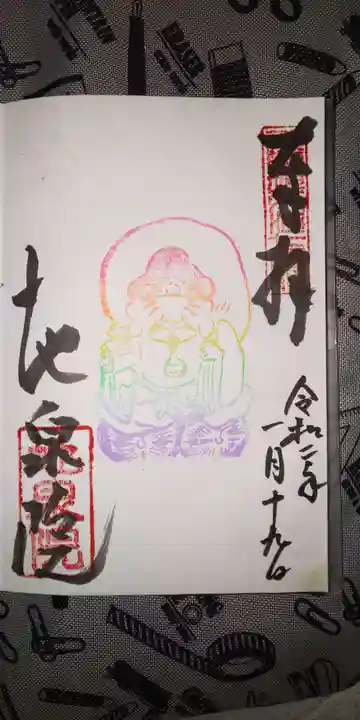 奉拝
令和二年
一月十九日
地泉院